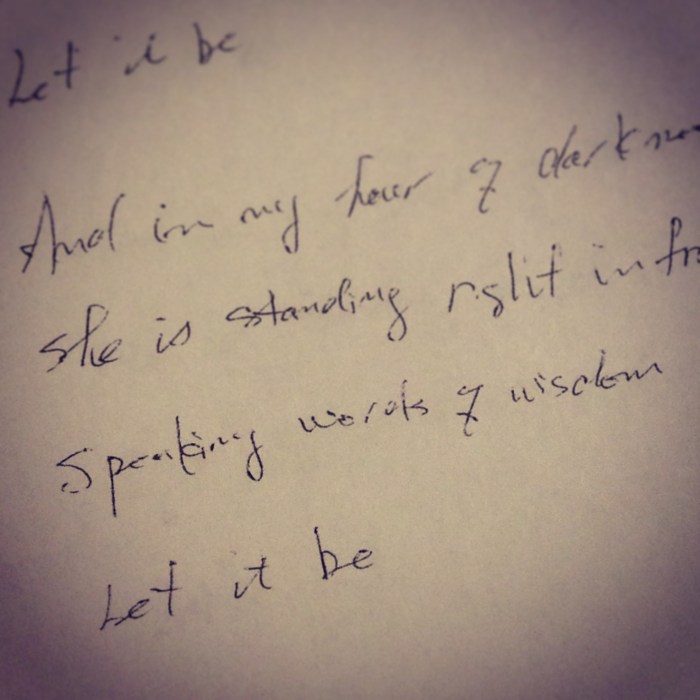 Let it be
And in my hour of darkn
she is standing right in fr
Speaking words of wisdom
Let it be